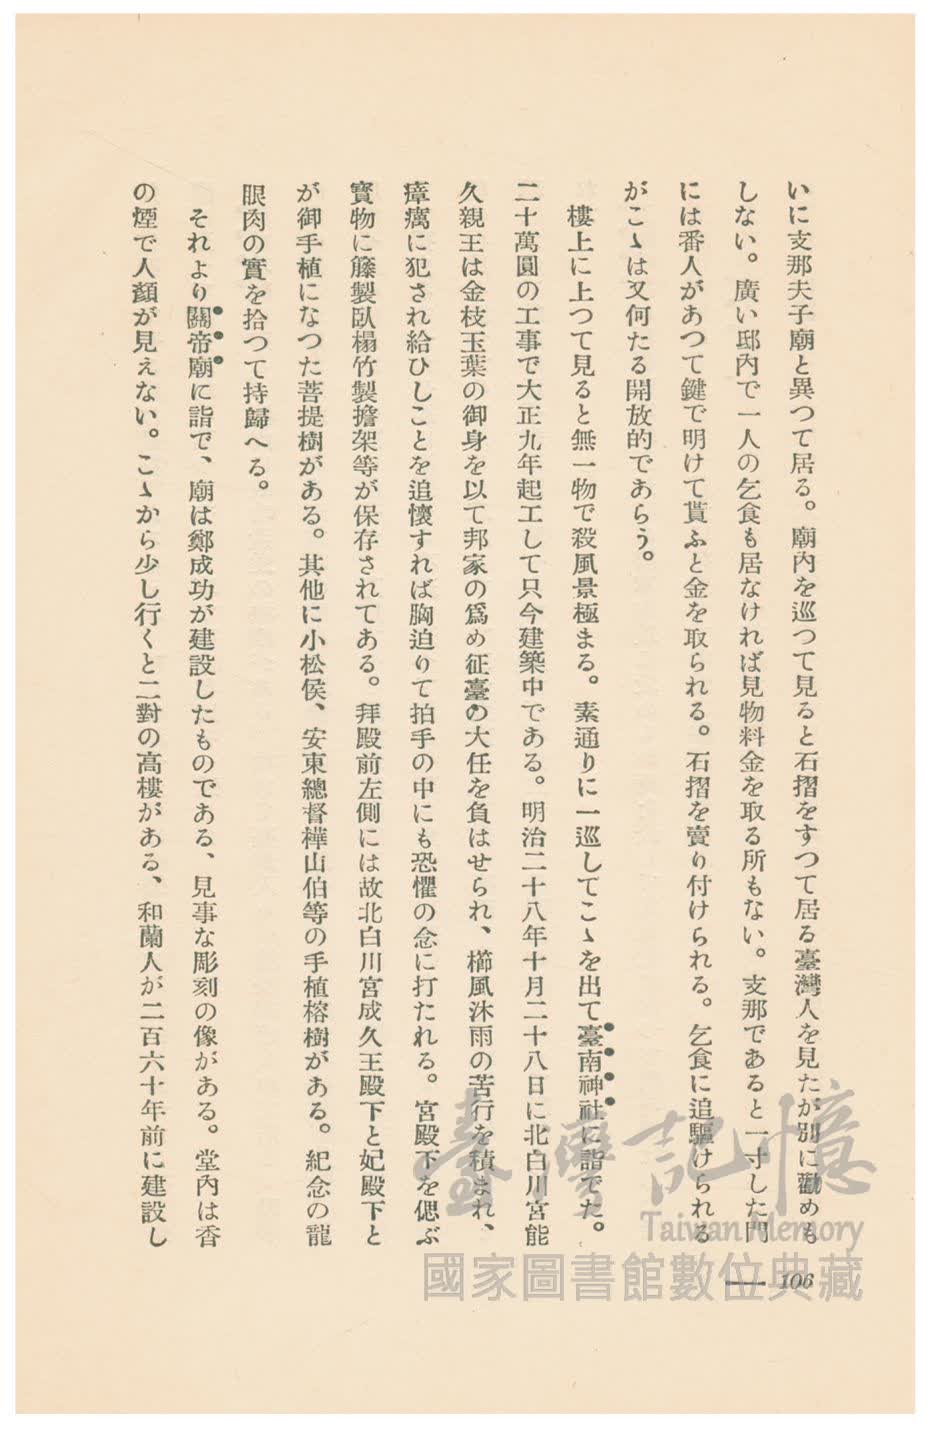 いに支那夫子廟と異つて居る。廟內を巡つて見ると石摺をすつて居る臺灣人を見たが別に勸めも
しない。廣い邸內で一人の乞食も居なければ見物料金を取る所もない。支那であると一寸した門
には番人があつて鍵で明けて貰ふと金を取られる。石摺を賣り付けられる。乞食に追驅けられる
がこゝは又何たる開放的であらう。
樓上に上つて見ると無一物で殺風景極まる。素通りに一巡してこゝを出て臺南神社に詣でた。
二十萬圓の工事で大正九年起工して只今建築中である。明治二十八年十月二十八日に北白川宮能
久親王は金枝玉葉の御身を以て邦家の爲め征臺の大任を負はせられ、櫛風沐雨の苦行を積まれ、
瘴癘に犯され給ひしことを追懷すれば胸迫りて拍手の中にも恐懼の念に打たれる。宮殿下を偲ぶ
寳物に籐製臥榻竹製擔架等が保存されてある。拜殿前左側には故北白川宮成久王殿下と妃殿下と
が御手植になつた菩提樹がある。其他に小松侯、安東總督樺山伯等の手植榕樹がある。紀念の龍
眼肉の實を拾つて持歸へる。
それより關帝廟に詣で、廟は鄭成功が建設したものである、見事な彫刻の像がある。堂內は香
の煙で人顏が見えない。こゝから少し行くと二對の高樓がある、和蘭人が二百六十年前に建設し
106
臺灣記憶
Taiwan Memory
國家圖書館數位典藏